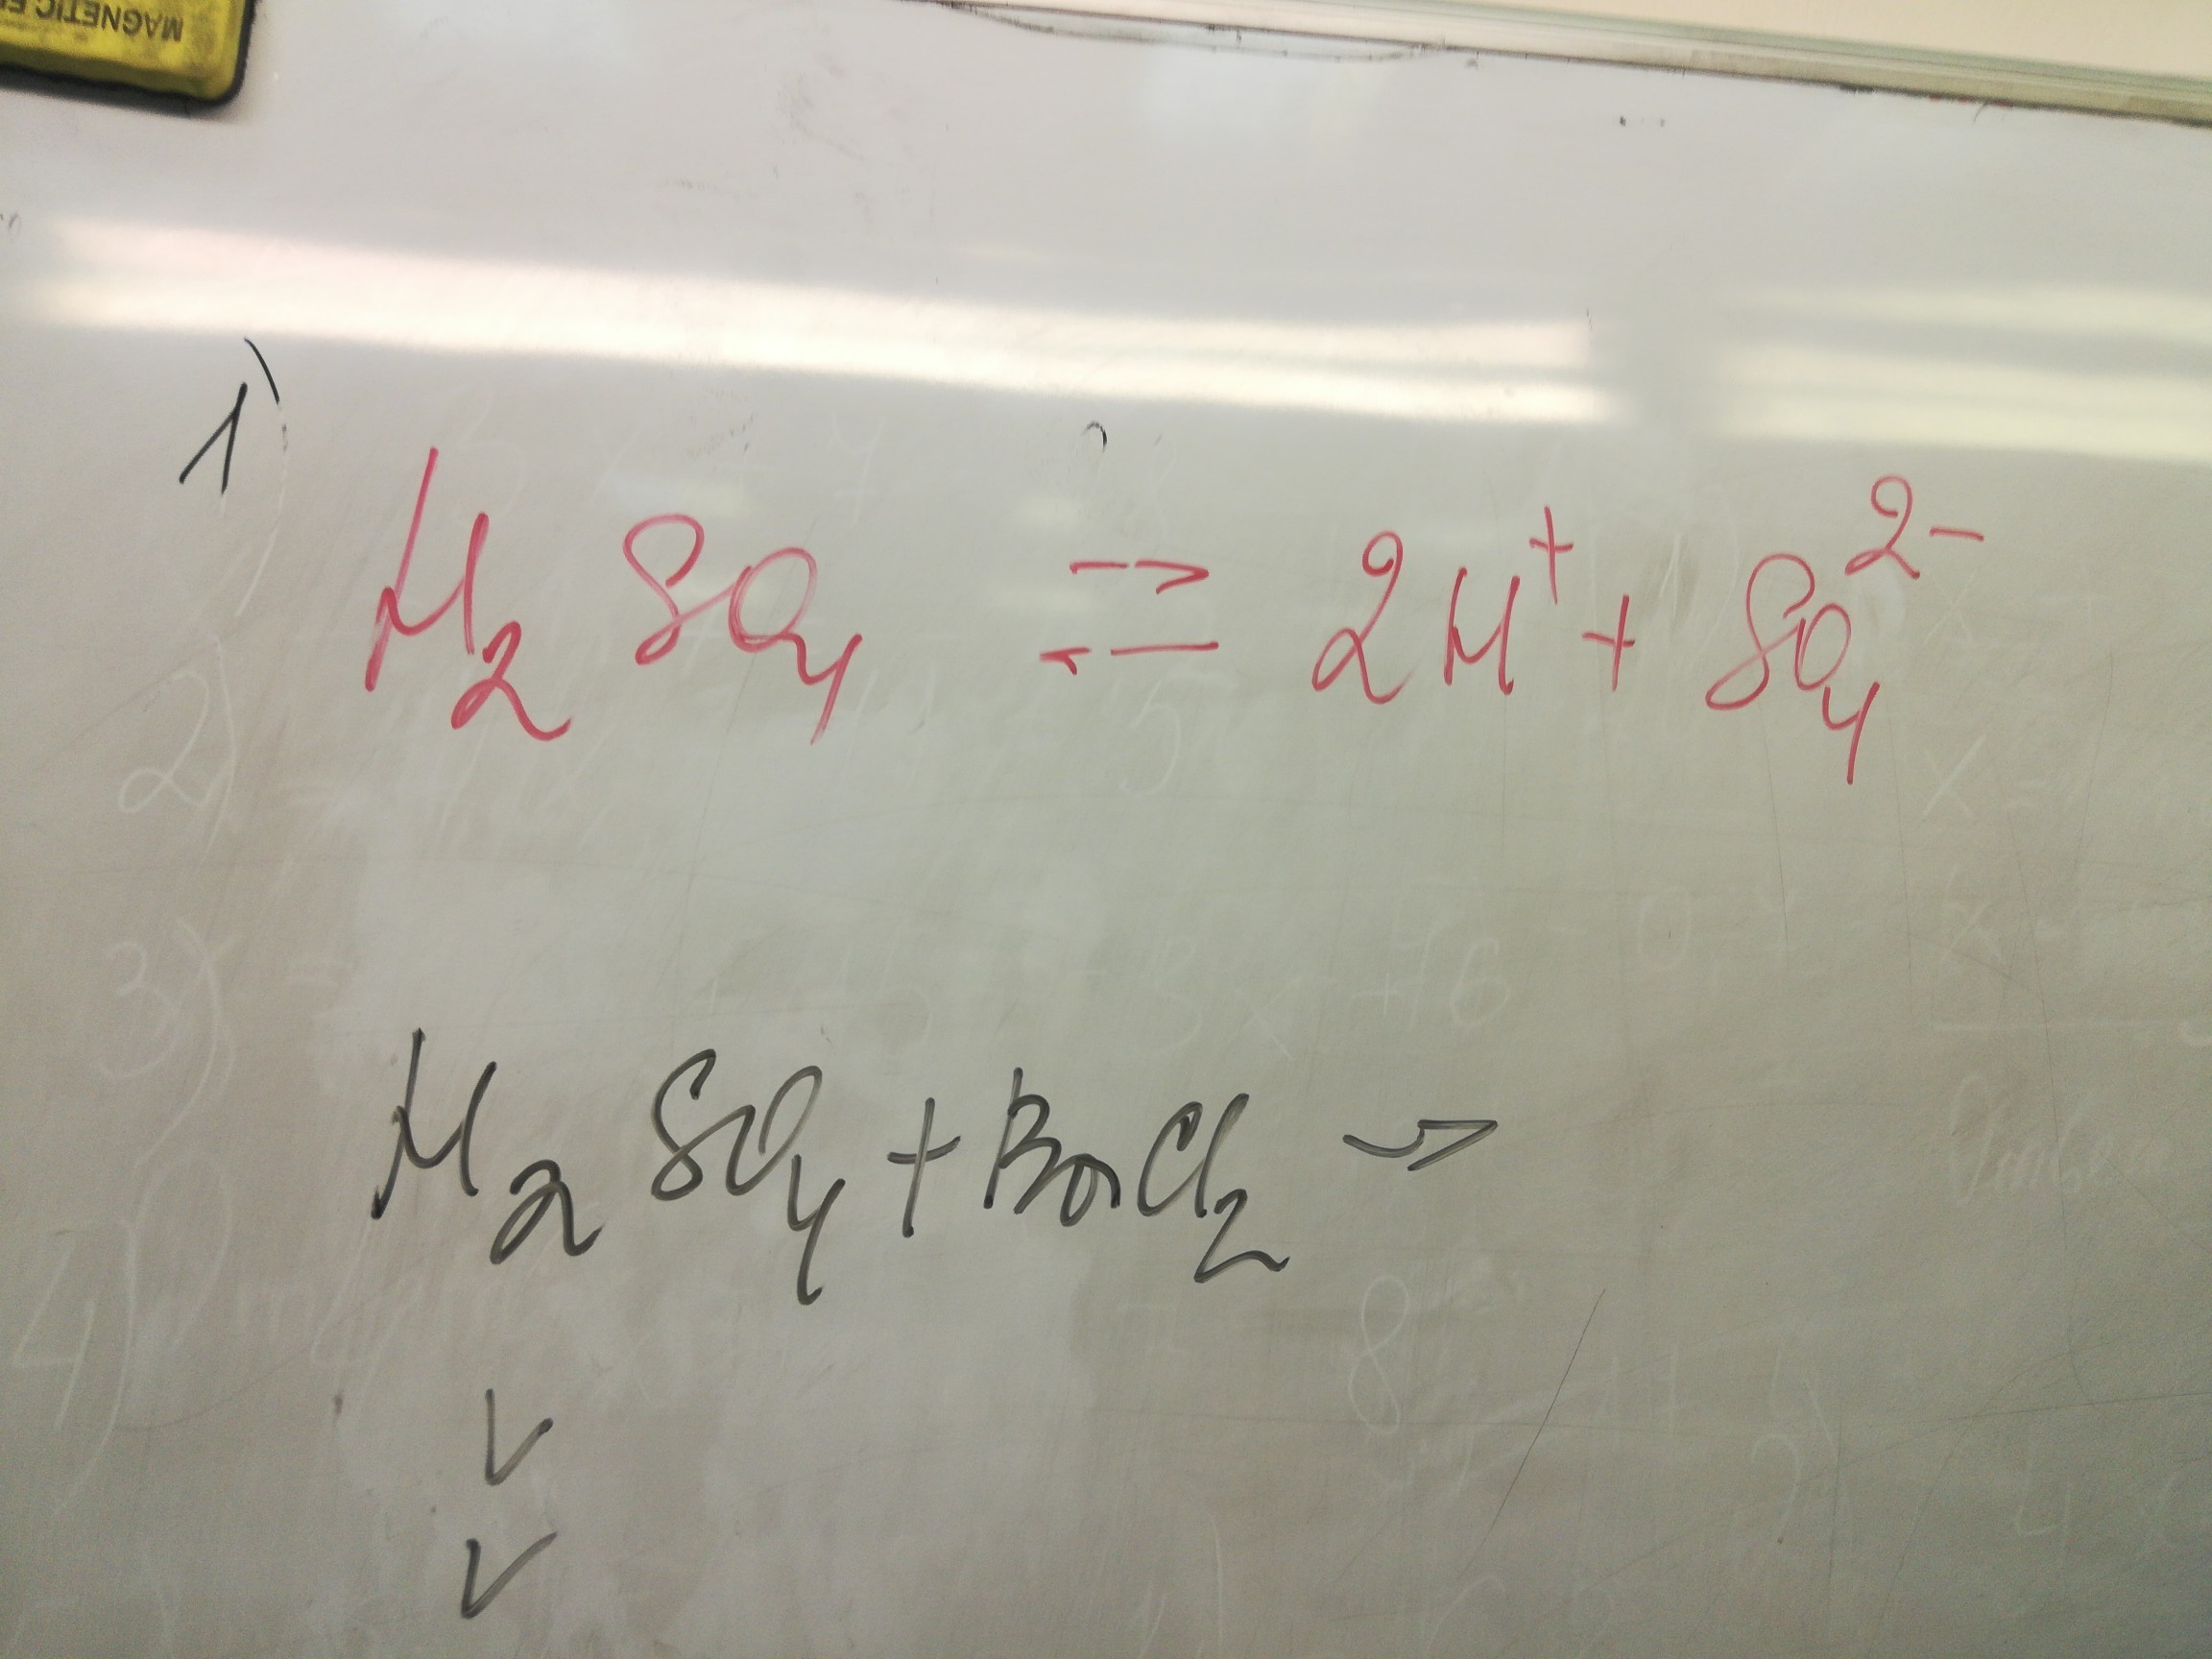 MAGNETIC E
1)
H₂SO₄ ⇄ 2H⁺ + SO₄²⁻
2)
3)
H₂SO₄ + BaCl₂ →
4)